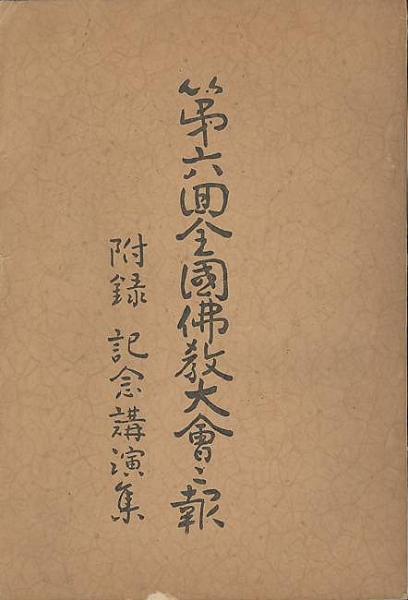 第六回全國佛教大會々報
附錄 記念講演集